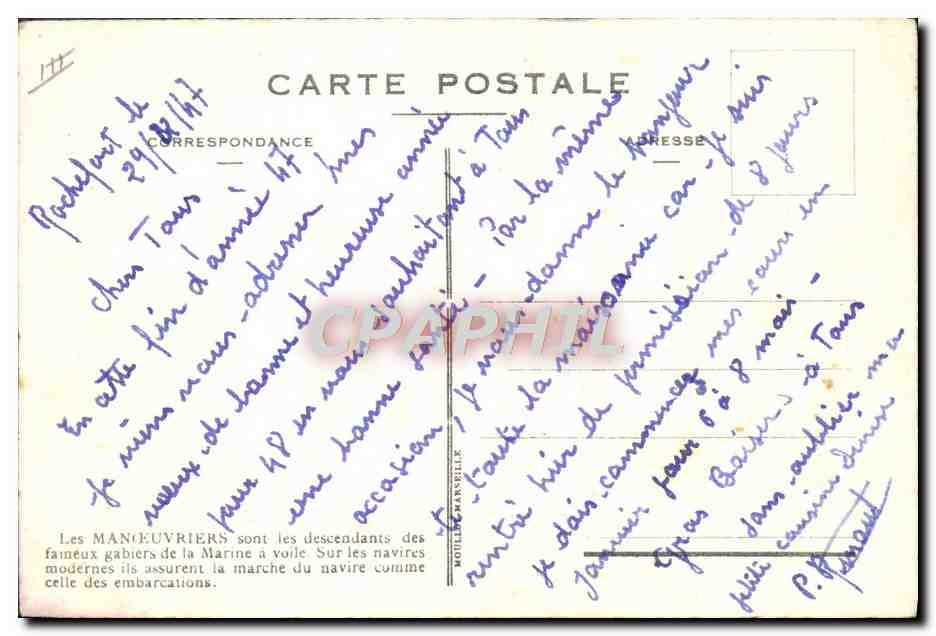 CARTE POSTALE
CORRESPONDANCE
ADRESSE
Rochefort le
29/12/47
Chers Tous
En cette fin d'année 47
je viens vous adresser mes
voeux de bonne et heureuse année
pour 48 en vous souhaitant à Tous
une bonne santé - Par la même
occasion, je vous donne le bonjour
de toute la maisonnée car je suis
rentré hier de permission de 8 jours
je dois commencer mes cours en
Janvier pour 6 à 8 mois -
Gros Baisers à Tous
sans oublier ma
petite cousine
P.P.
Les MANŒUVRIERS sont les descendants des
fameux gabiers de la Marine à voile. Sur les navires
modernes ils assurent la marche du navire comme
celle des embarcations.
MOULLOT MARSEILLE
CPAPHIL